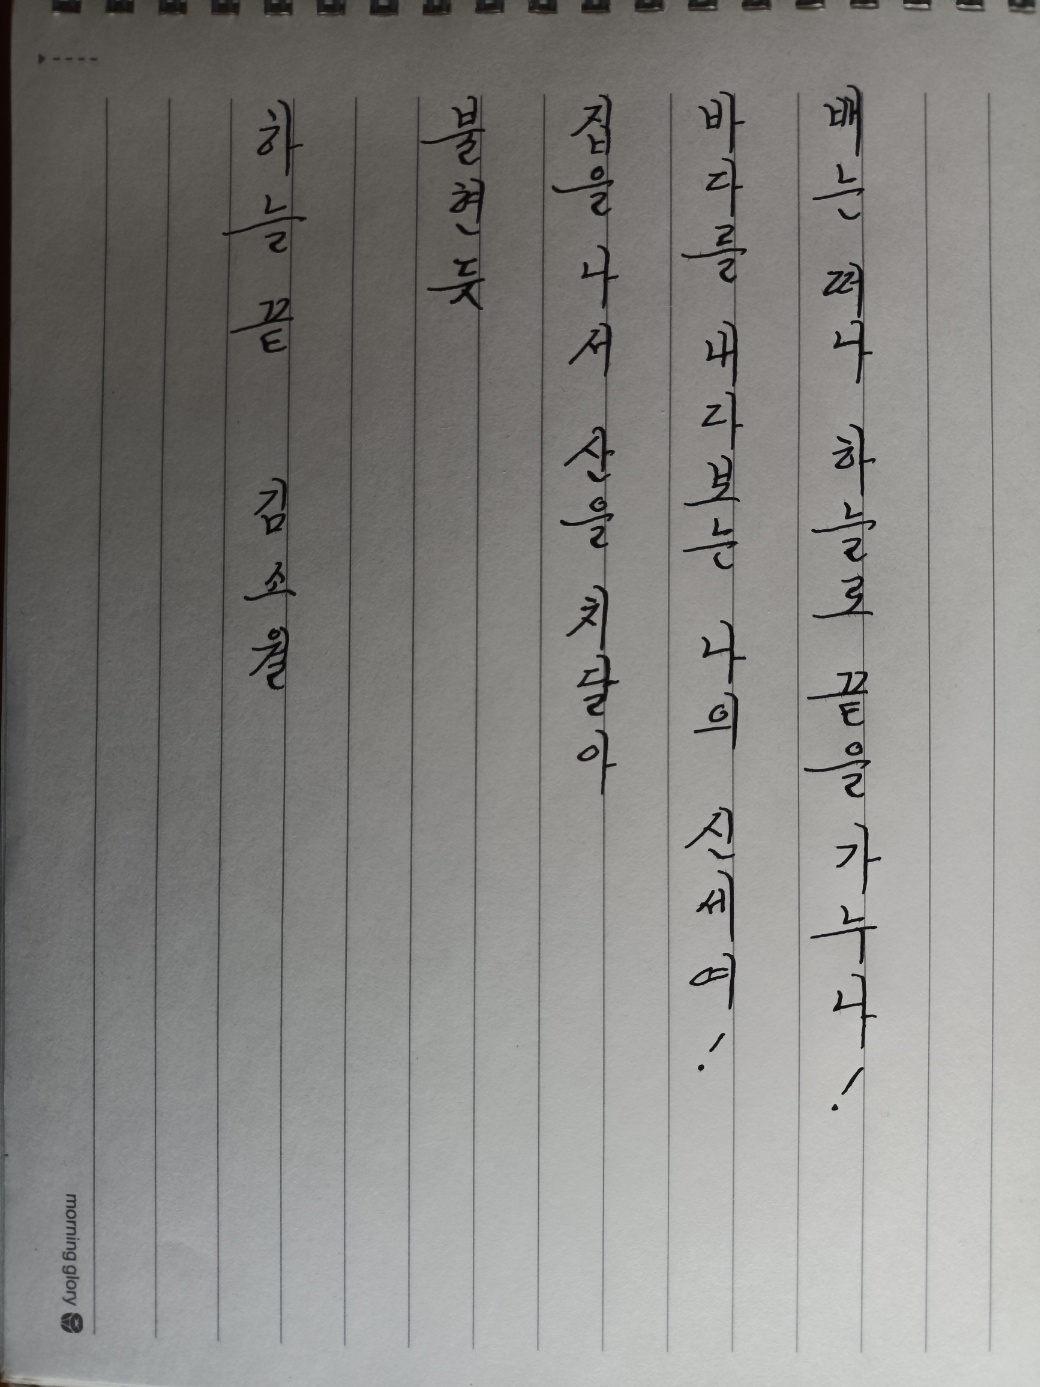 하늘 끝 김소월
불현듯
집을 나서 산을 치달아
바다를 내다보는 나의 신세여!
배는 떠나 하늘로 끝을 가누나!
morning glory